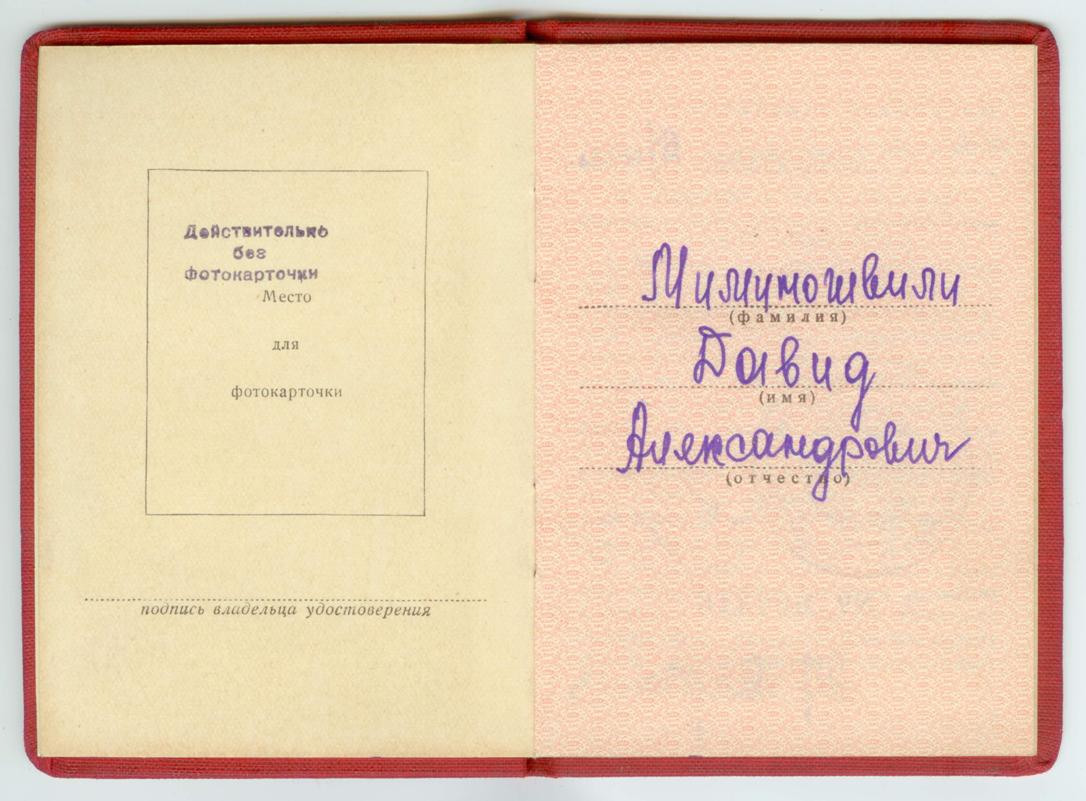 Действительно
без
фотокарточки
Место
для
фотокарточки
подпись владельца удостоверения
Мимуношвили
(фамилия)
Давид
(имя)
Александрович
(отчество)